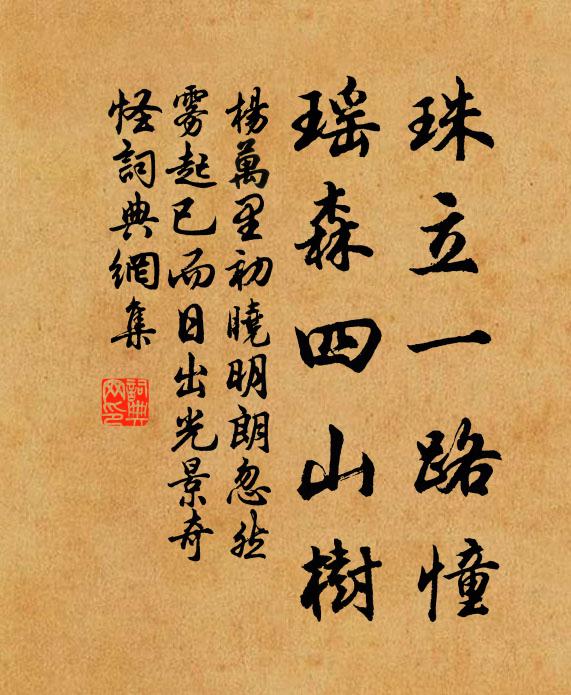 珠立一路憧
瑤森四山樹
楊萬里初曉明朗忽然
雾起已而日出光景奇
怪詞典網集
詞典网印